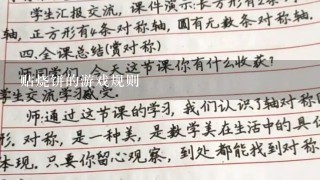 学生汇报交流，课件演示：长方形有2条
轴，正方形有4条对称轴，圆有无数条对称轴
四.全课总结(赏对称)
今天这节课你有什么收获？
贴烧饼的游戏规则
学生交流学习
师：通过这节课的学习，我们认识了轴对称
形.对称，是一种美，是数学美在生活中的具
体现.只要你留心观察，到处都能找到对称